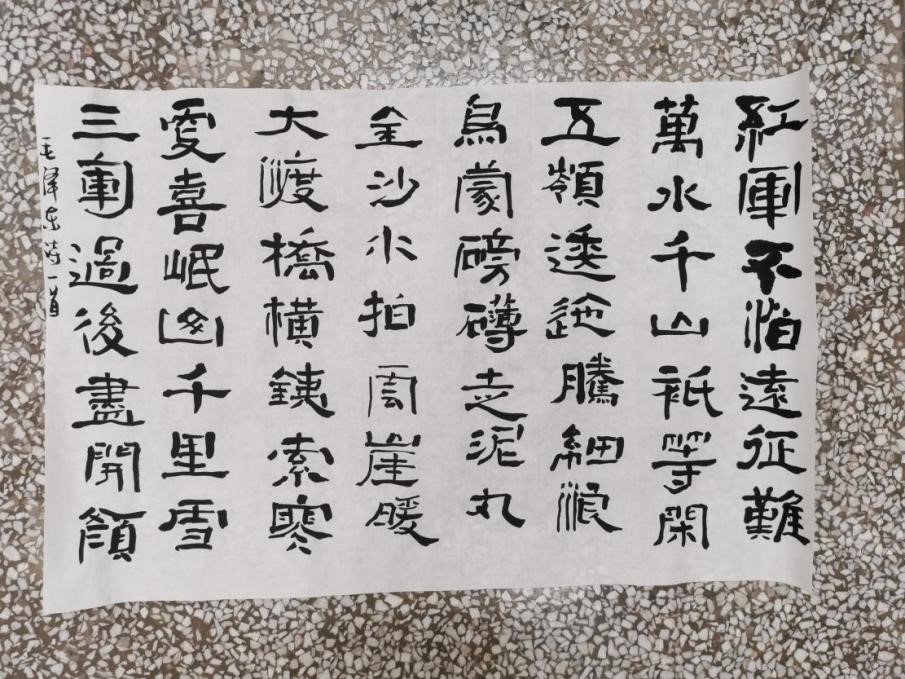 紅軍不怕遠征難
萬水千山衹等閑
五嶺逶迤騰細浪
烏蒙磅礴走泥丸
金沙水拍雲崖暖
大渡橋橫鐵索寒
更喜岷山千里雪
三軍過後盡開顏
毛澤東詩一首